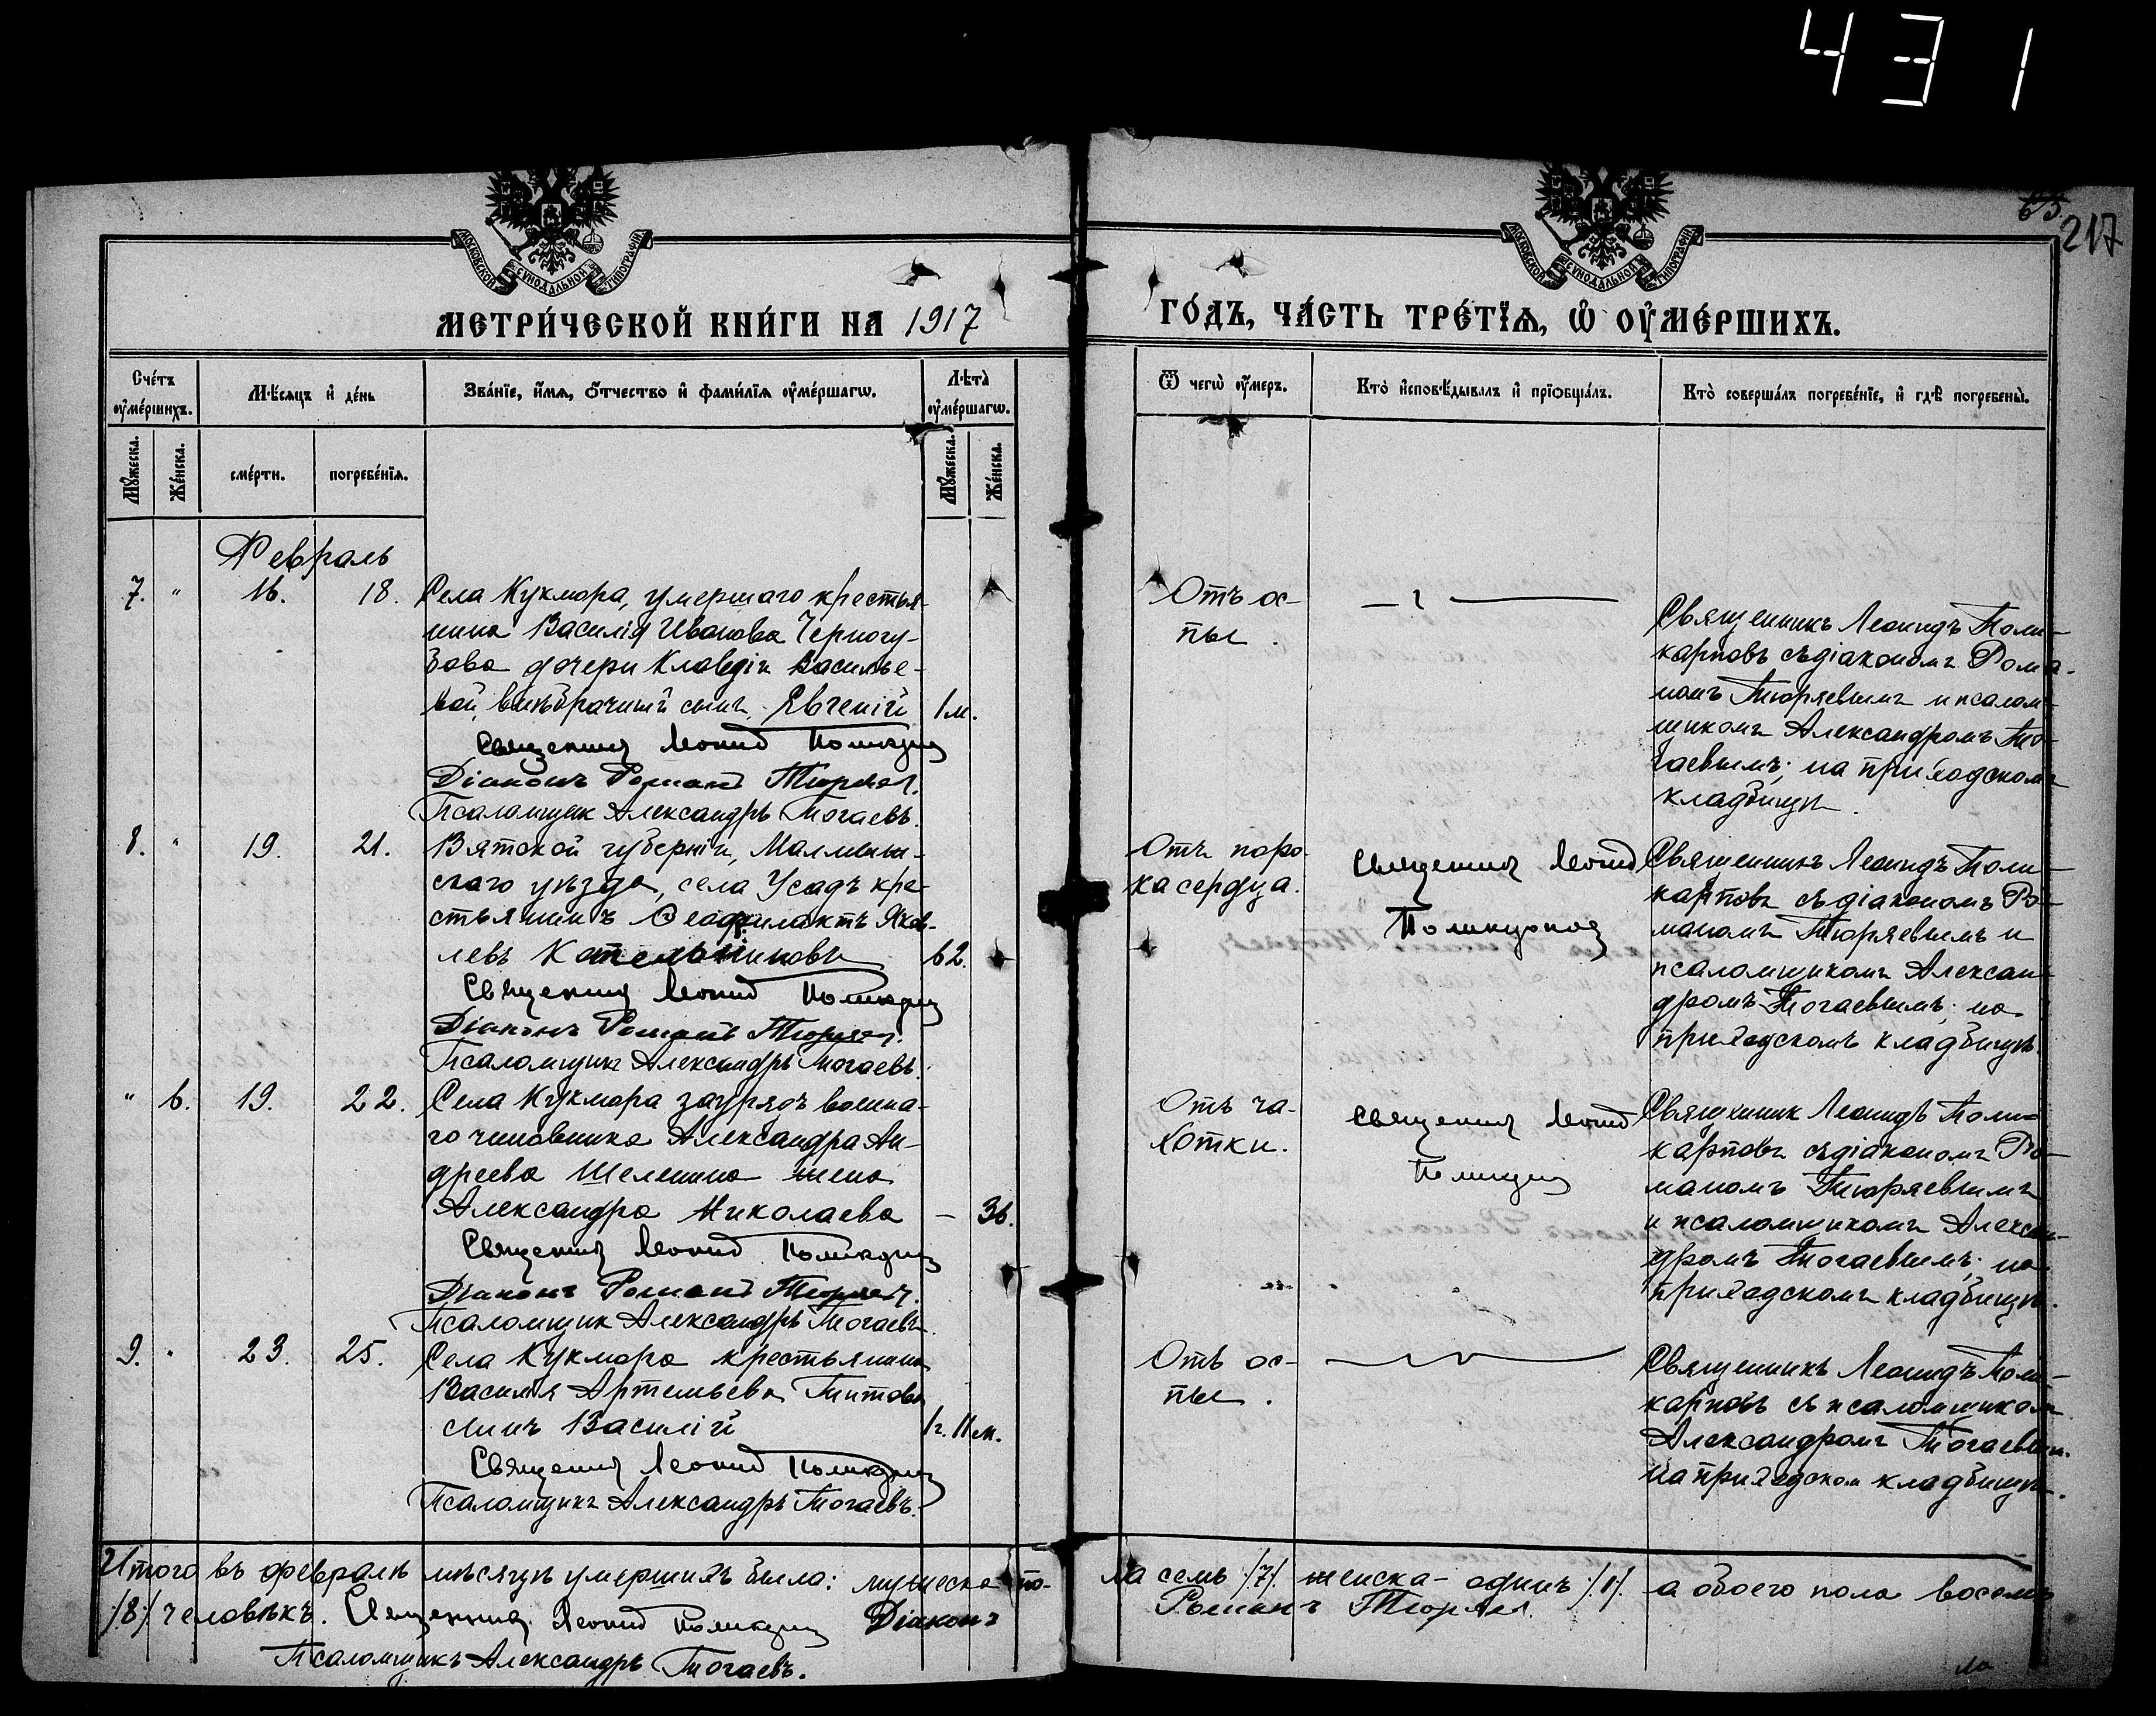 431
65.
217
МОСКОВСКОЙ СѴНОДАЛЬНОЙ ТИПОГРАФІИ
МОСКОВСКОЙ СѴНОДАЛЬНОЙ ТИПОГРАФІИ
МЕТРИ́ЧЕСКОЙ КНИ́ГИ НА 1917
ГО́ДЪ, ЧА́СТЬ ТРЕ́ТЇѦ, Ѽ ОУ҆МЕ́РШИХЪ.
Сче́тъ оу҆ме́ршихъ.
Мѣ́сяцъ и҆ де́нь
Зва́нїе, и҆́мѧ, ѻ҆́тчество и҆ фами́лїѧ оу҆ме́ршагѡ.
Лѣ̑та оу҆ме́ршагѡ.
Ѿ чегѡ̀ оу҆́меръ.
Кто̀ и҆сповѣ́дывалъ и҆ прїѻбща́лъ.
Кто̀ соверша́лъ погребе́нїе, и҆ гдѣ̀ погребены̀.
Мꙋ́жеска.
Же́нска.
сме́рти.
погребе́нїѧ.
Мꙋ́жеска.
Же́нска.
Февраль
7. " 16. 18.
Села Кукмора, умершаго крестья-
нина Василія Иванова Черногу-
зова дочери Клавдіи Василье-
вой, внѣбрачный сынъ, Евгеній 1м.
Священник Леонид Поликарпов
Діаконъ Романъ Тюряев.
Псаломщик Александръ Тогаевъ.
Отъ ос-
пы.
Священникъ Леонидъ Поли-
карповъ съ діакономъ Рома-
номъ Тюряевымъ и псалом-
щикомъ Александромъ То-
гаевымъ; на приходскомъ
кладбищѣ.
8. " 19. 21.
Вятской губерніи, Малмыж-
скаго уѣзда, села Усадъ кре-
стьянинъ Ѳеофилактъ Яков-
левъ Котельниковъ 62.
Священник Леонид Поликарпов
Діаконъ Романъ Тюряев.
Псаломщикъ Александръ Тогаевъ.
Отъ поро-
ка сердца.
Священник Леонид
Поликарпов
Священникъ Леонидъ Поли-
карповъ съ діакономъ Ро-
маномъ Тюряевымъ и
псаломщикомъ Алексан-
дромъ Тогаевымъ; на
приходскомъ кладбищѣ.
" 6. 19. 22.
Села Кукмора зауряд военна-
го чиновника Александра Ан-
дреева Шеленина жена
Александра Николаева — 36.
Священник Леонид Поликарпов
Діаконъ Романъ Тюряев.
Псаломщик Александръ Тогаевъ.
Отъ ча-
хотки.
Священник Леонид
Поликарпов
Священник Леонидъ Поли-
карповъ съ діакономъ Ро-
маномъ Тюряевымъ
и псаломщикомъ Алексан-
дромъ Тогаевымъ; на
приходскомъ кладбищѣ.
9. " 23. 25.
Села Кукмора крестьянина
Василія Артемьева Титова
сынъ Василій 1г. 11м.
Священник Леонид Поликарпов
Псаломщикъ Александръ Тогаевъ.
Отъ ос-
пы.
Священникъ Леонидъ Поли-
карповъ съ псаломщиком
Александромъ Тогаевым.
на приходском кладбищѣ.
Итого въ февралѣ мѣсяцѣ умершихъ было: мужеска по-
ла семь /7/. женска - одинъ /1/. а обоего пола восемь
/8/ человѣкъ. Священник Леонид Поликарпов Діаконъ
Романъ Тюряев.
Псаломщикъ Александръ Тогаевъ.